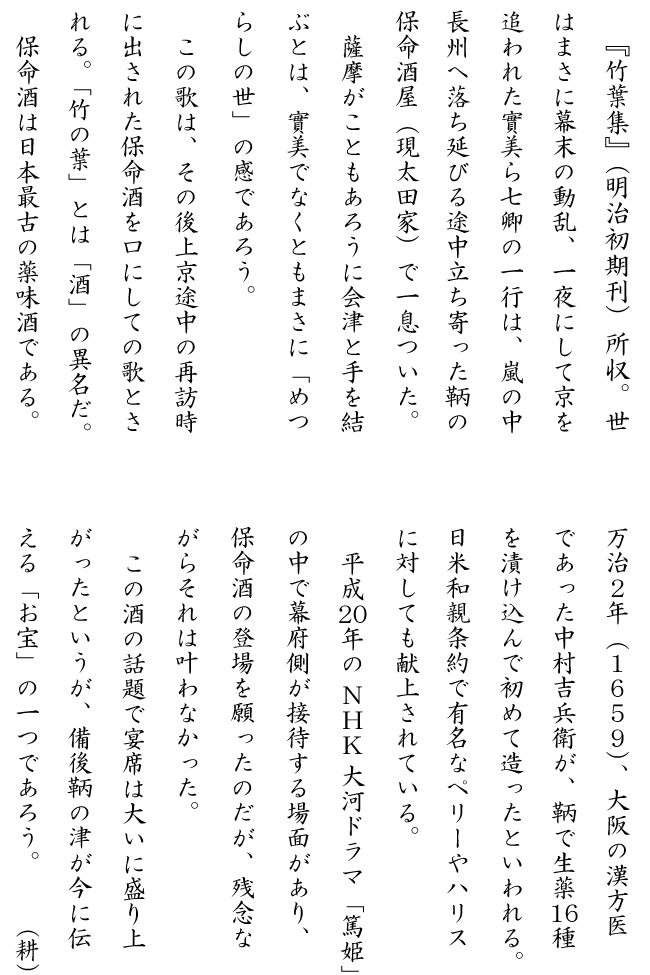 『竹葉集』（明治初期刊）所収。世
はまさに幕末の動乱、一夜にして京を
追われた實美ら七卿の一行は、嵐の中
長州へ落ち延びる途中立ち寄った鞆の
保命酒屋（現太田家）で一息ついた。
薩摩がこともあろうに会津と手を結
ぶとは、實美でなくともまさに「めつ
らしの世」の感であろう。
この歌は、その後上京途中の再訪時
に出された保命酒を口にしての歌とさ
れる。「竹の葉」とは「酒」の異名だ。
保命酒は日本最古の薬味酒である。
万治2年（1659）、大阪の漢方医
であった中村吉兵衛が、鞆で生薬16種
を漬け込んで初めて造ったといわれる。
日米和親条約で有名なペリーやハリス
に対しても献上されている。
平成20年のNHK大河ドラマ「篤姫」
の中で幕府側が接待する場面があり、
保命酒の登場を願ったのだが、残念な
がらそれは叶わなかった。
この酒の話題で宴席は大いに盛り上
がったというが、備後鞆の津が今に伝
える「お宝」の一つであろう。　（耕）